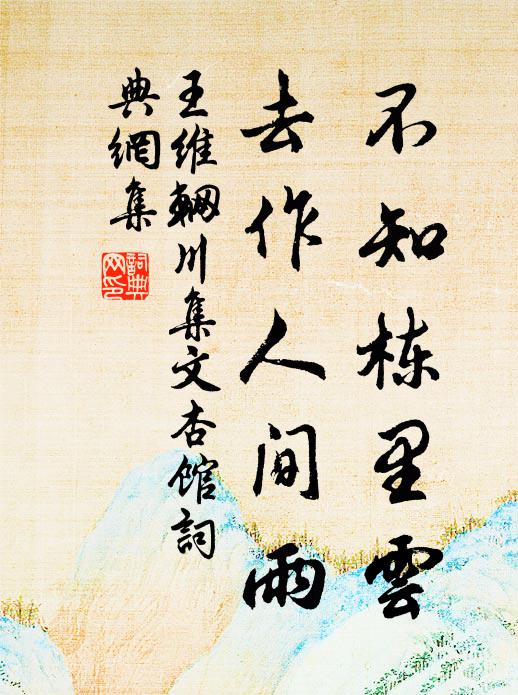 不知栋里雲
去作人间雨
王维輞川集文杏馆詞
典網集
詞典
网印